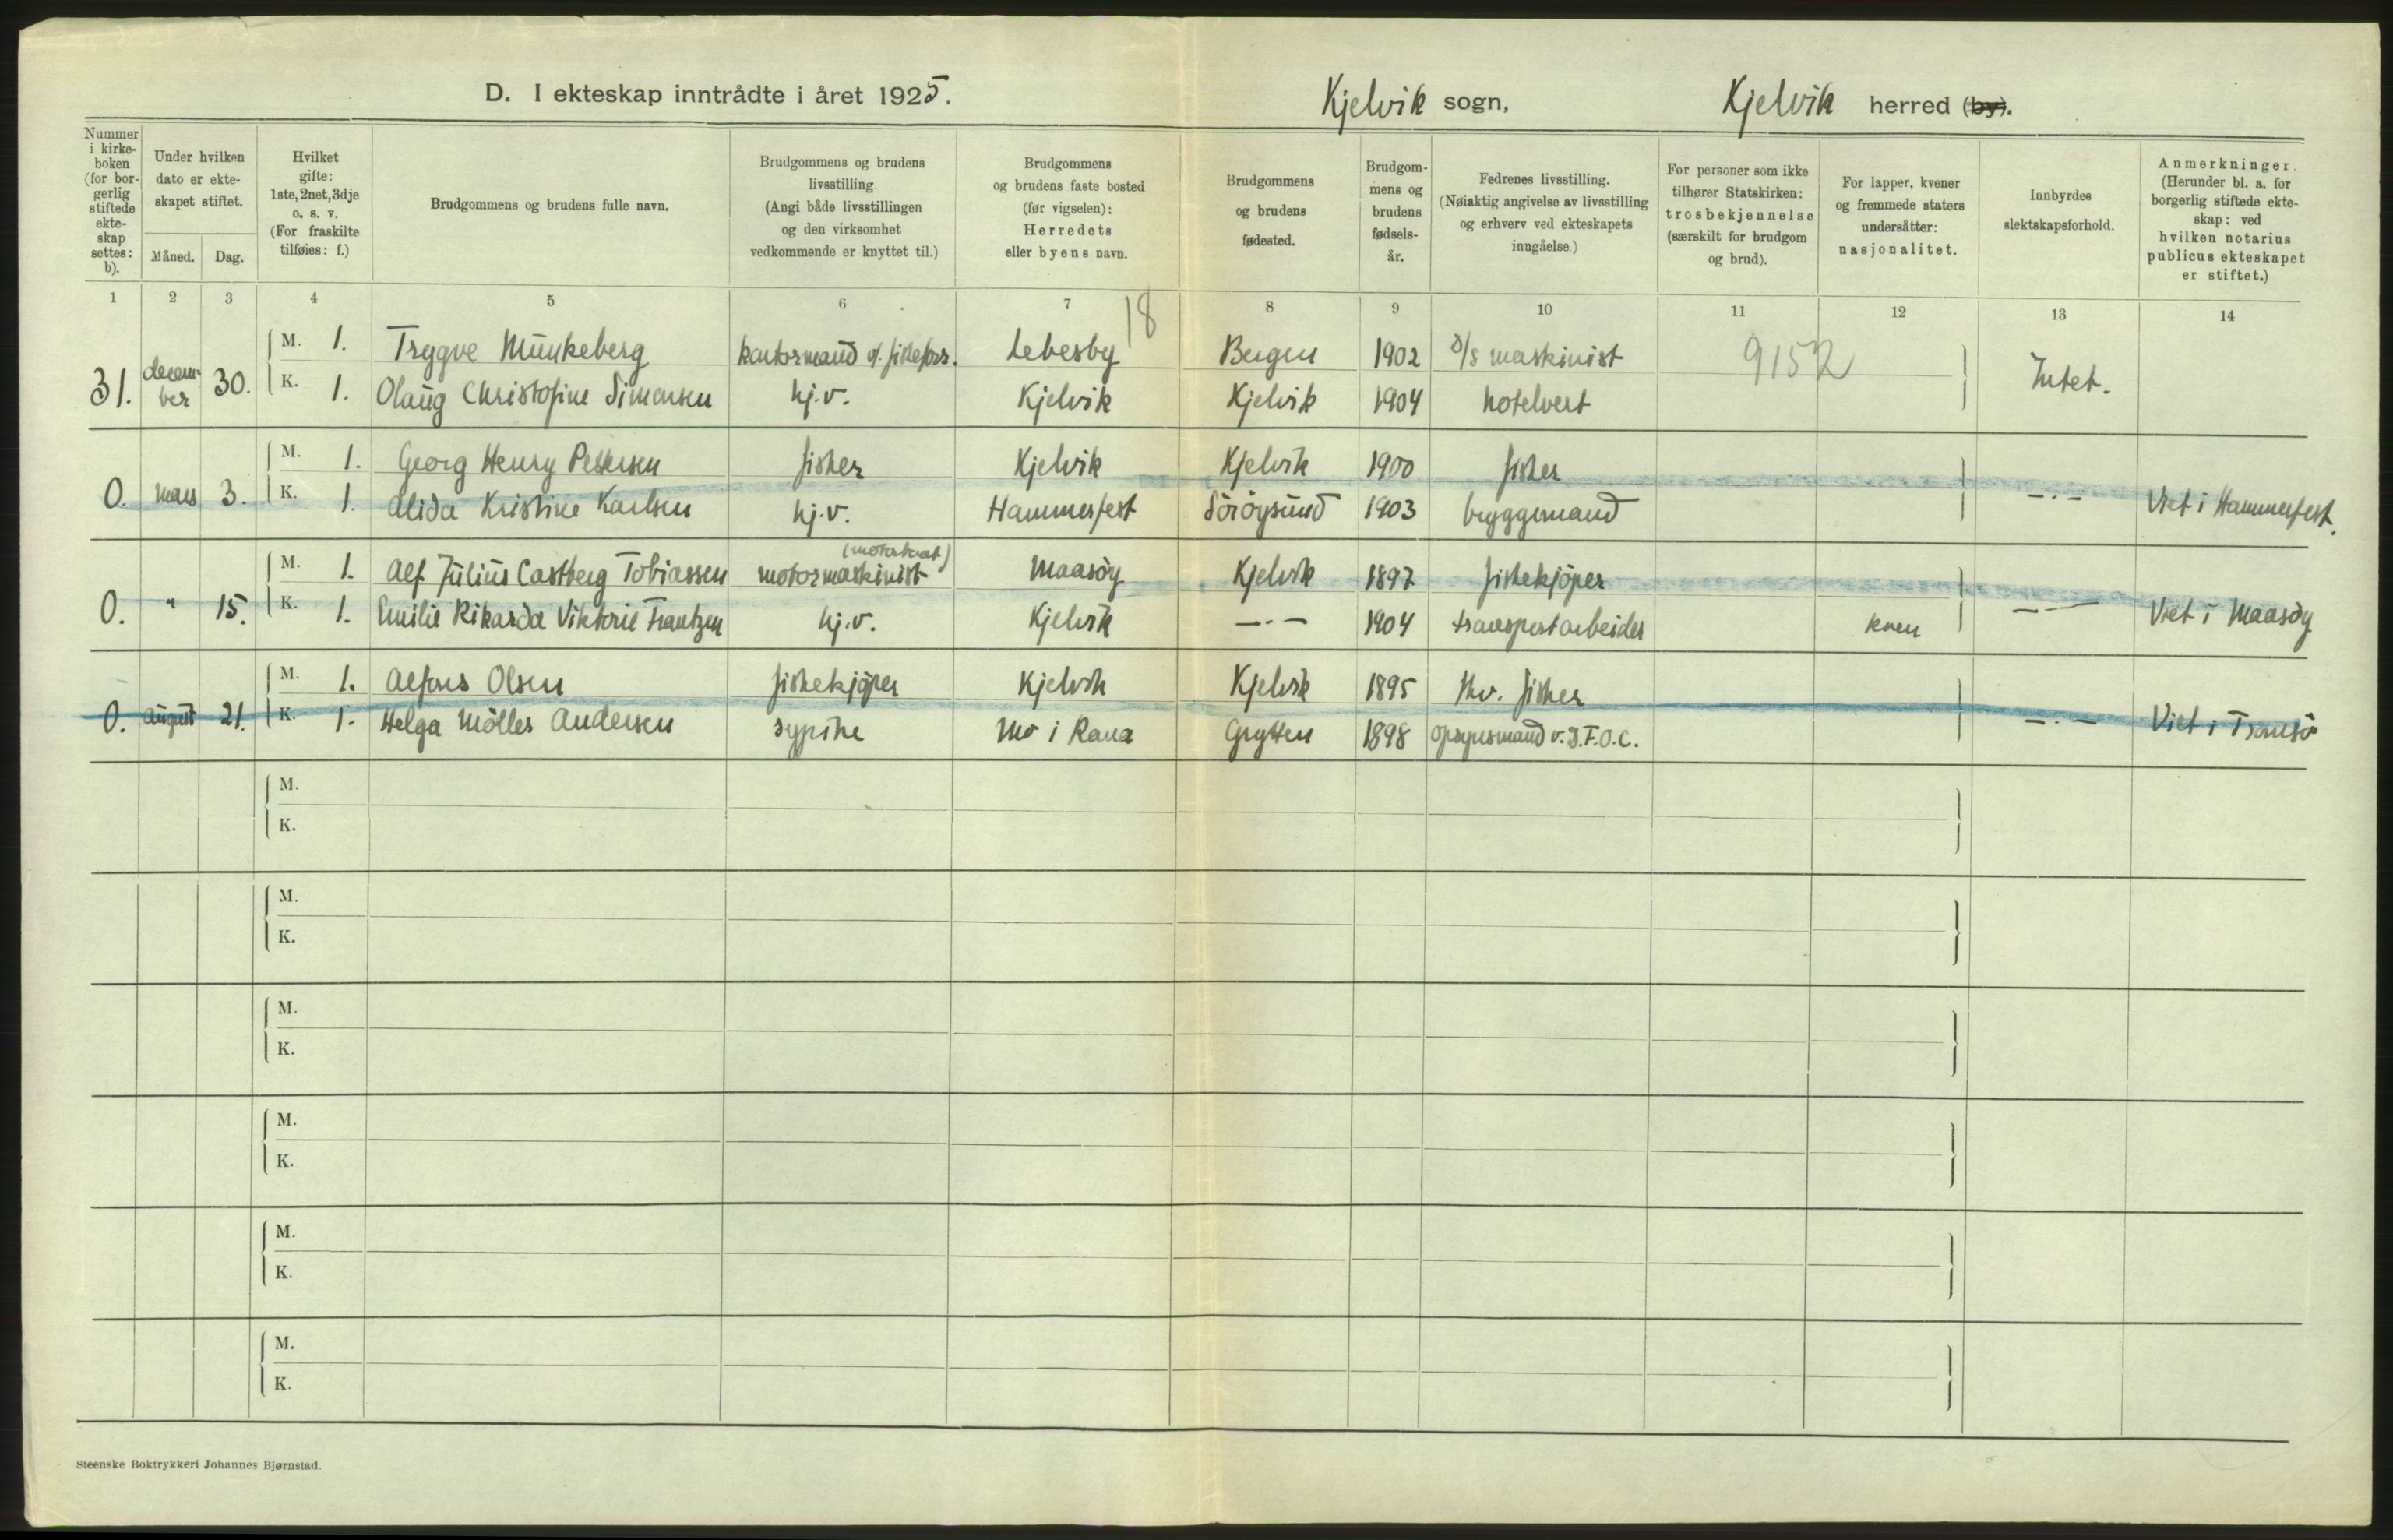 D. I ekteskap inntrådte i året 1925.
Kjelvik sogn, Kjelvik herred (by).
Nummer i kirkeboken (for borgerlig stiftede ekteskap settes: b).
Under hvilken dato er ekteskapet stiftet.
Måned. Dag.
Hvilket gifte: 1ste, 2net, 3dje o. s. v. (For fraskilte tilføies: f.)
Brudgommens og brudens fulle navn.
Brudgommens og brudens livsstilling. (Angi både livsstillingen og den virksomhet vedkommende er knyttet til.)
Brudgommens og brudens faste bosted (før vigselen): Herredets eller byens navn.
Brudgommens og brudens fødested.
Brudgommens og brudens fødselsår.
Fedrenes livsstilling. (Nøiaktig angivelse av livsstilling og erhverv ved ekteskapets inngåelse.)
For personer som ikke tilhører Statskirken: trosbekjennelse (særskilt for brudgom og brud).
For lapper, kvener og fremmede staters undersåtter: nasjonalitet.
Innbyrdes slektskapsforhold.
Anmerkninger. (Herunder bl. a. for borgerlig stiftede ekteskap: ved hvilken notarius publicus ekteskapet er stiftet.)
1 2 3 4 5 6 7 8 9 10 11 12 13 14
18
31. december 30.
M. 1. Trygve Munkeberg kontormand v/ fiskeforr. Lebesby Bergen 1902 d/s maskinist 9152
K. 1. Olaug Christofine Simonsen hj.v. Kjelvik Kjelvik 1904 hotelvert Intet.
0. mars 3.
M. 1. Georg Henry Pettersen fisker Kjelvik Kjelvik 1900 fisker
K. 1. Alida Kristine Karlsen hj.v. Hammerfest Söröysund 1903 bryggemand —·— Viet i Hammerfest.
0. " 15.
M. 1. Alf Julius Castberg Tobiassen motormaskinist (motorbaat) Maasöy Kjelvik 1897 fiskekjöper
K. 1. Emilie Rikarda Viktorie Frantzen hj.v. Kjelvik —·— 1904 transportarbeider kven —·— Viet i Maasöy
0. august 21.
M. 1. Alfons Olsen fiskekjöper Kjelvik Kjelvik 1895 fhv. fisker
K. 1. Helga Möller Andersen sypike Mo i Rana Grytten 1898 opsynsmand v. D.I.O.C. —·— Viet i Tromsö
M.
K.
M.
K.
M.
K.
M.
K.
M.
K.
M.
K.
Steenske Boktrykkeri Johannes Bjørnstad.